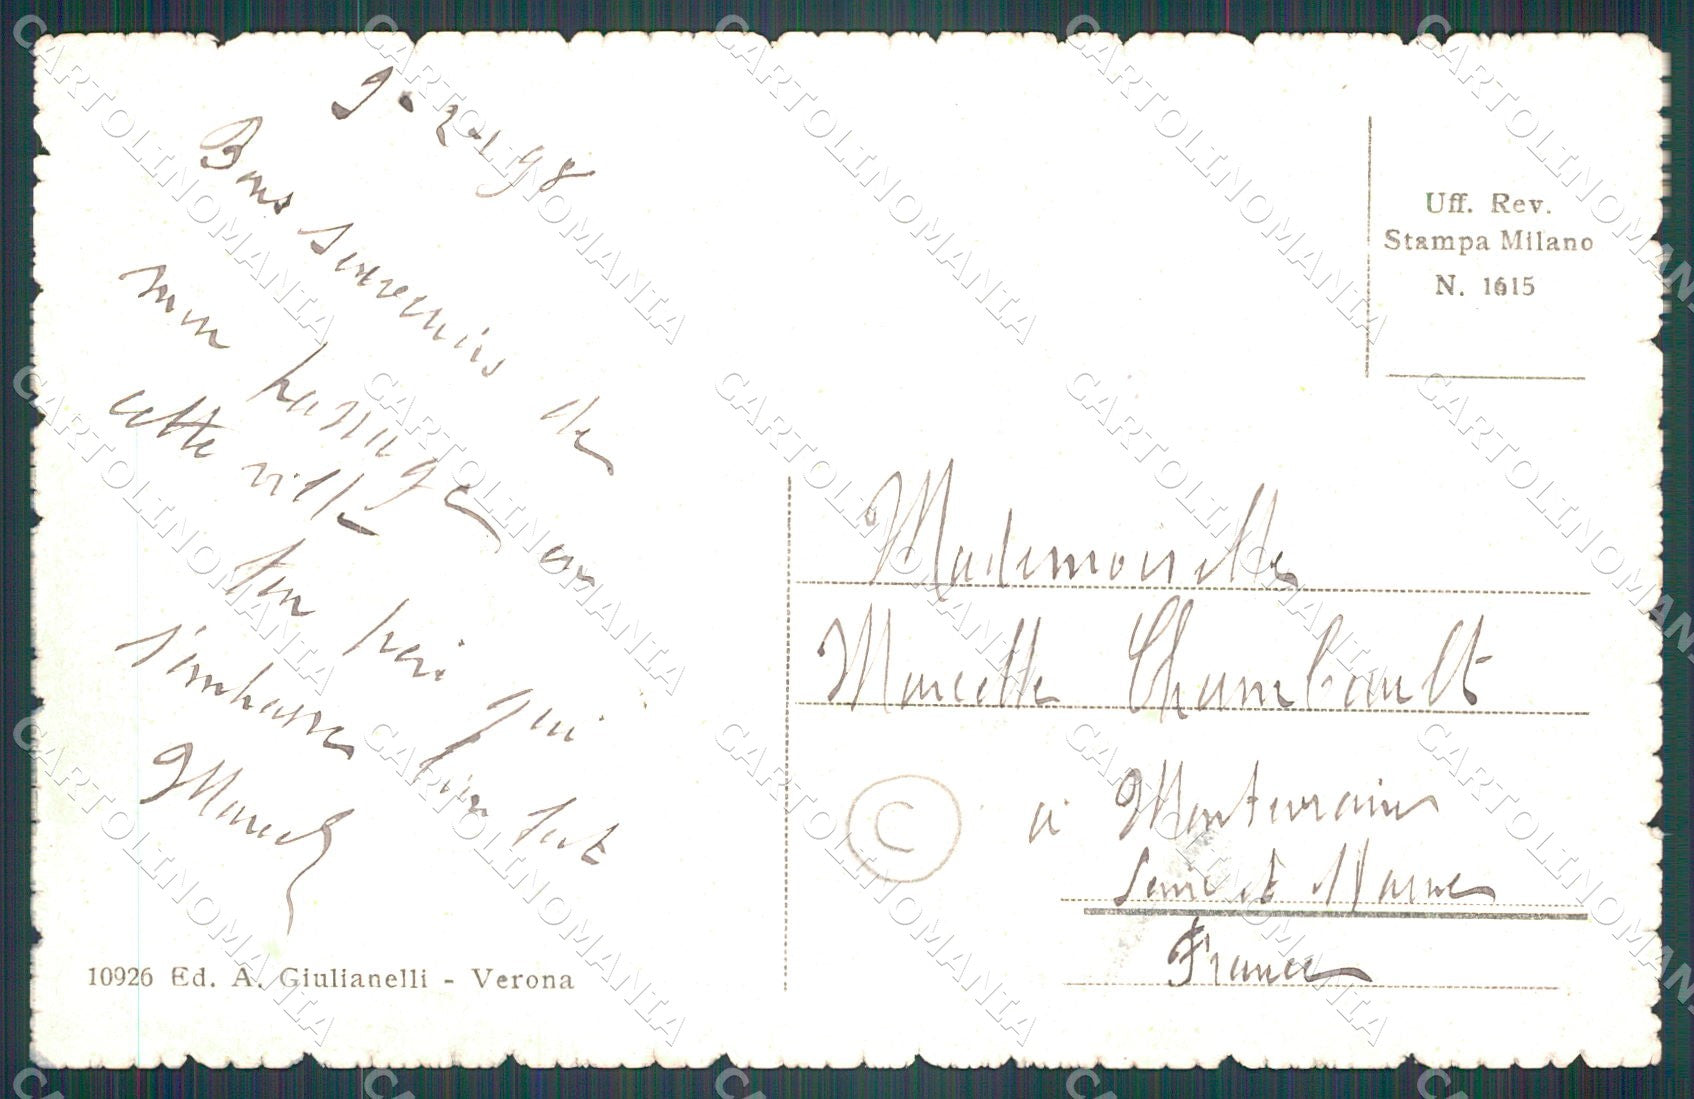 9-2-198
Bons souvenirs de
mon passage en
cette ville
Ton père qui
t'embrasse bien fort
Marcel
10926 Ed. A. Giulianelli - Verona
Uff. Rev.
Stampa Milano
N. 1615
Mademoiselle
Marcelle Chambault
à Montevrain
Seine et Marne
France
C
CARTOLINOMANIA